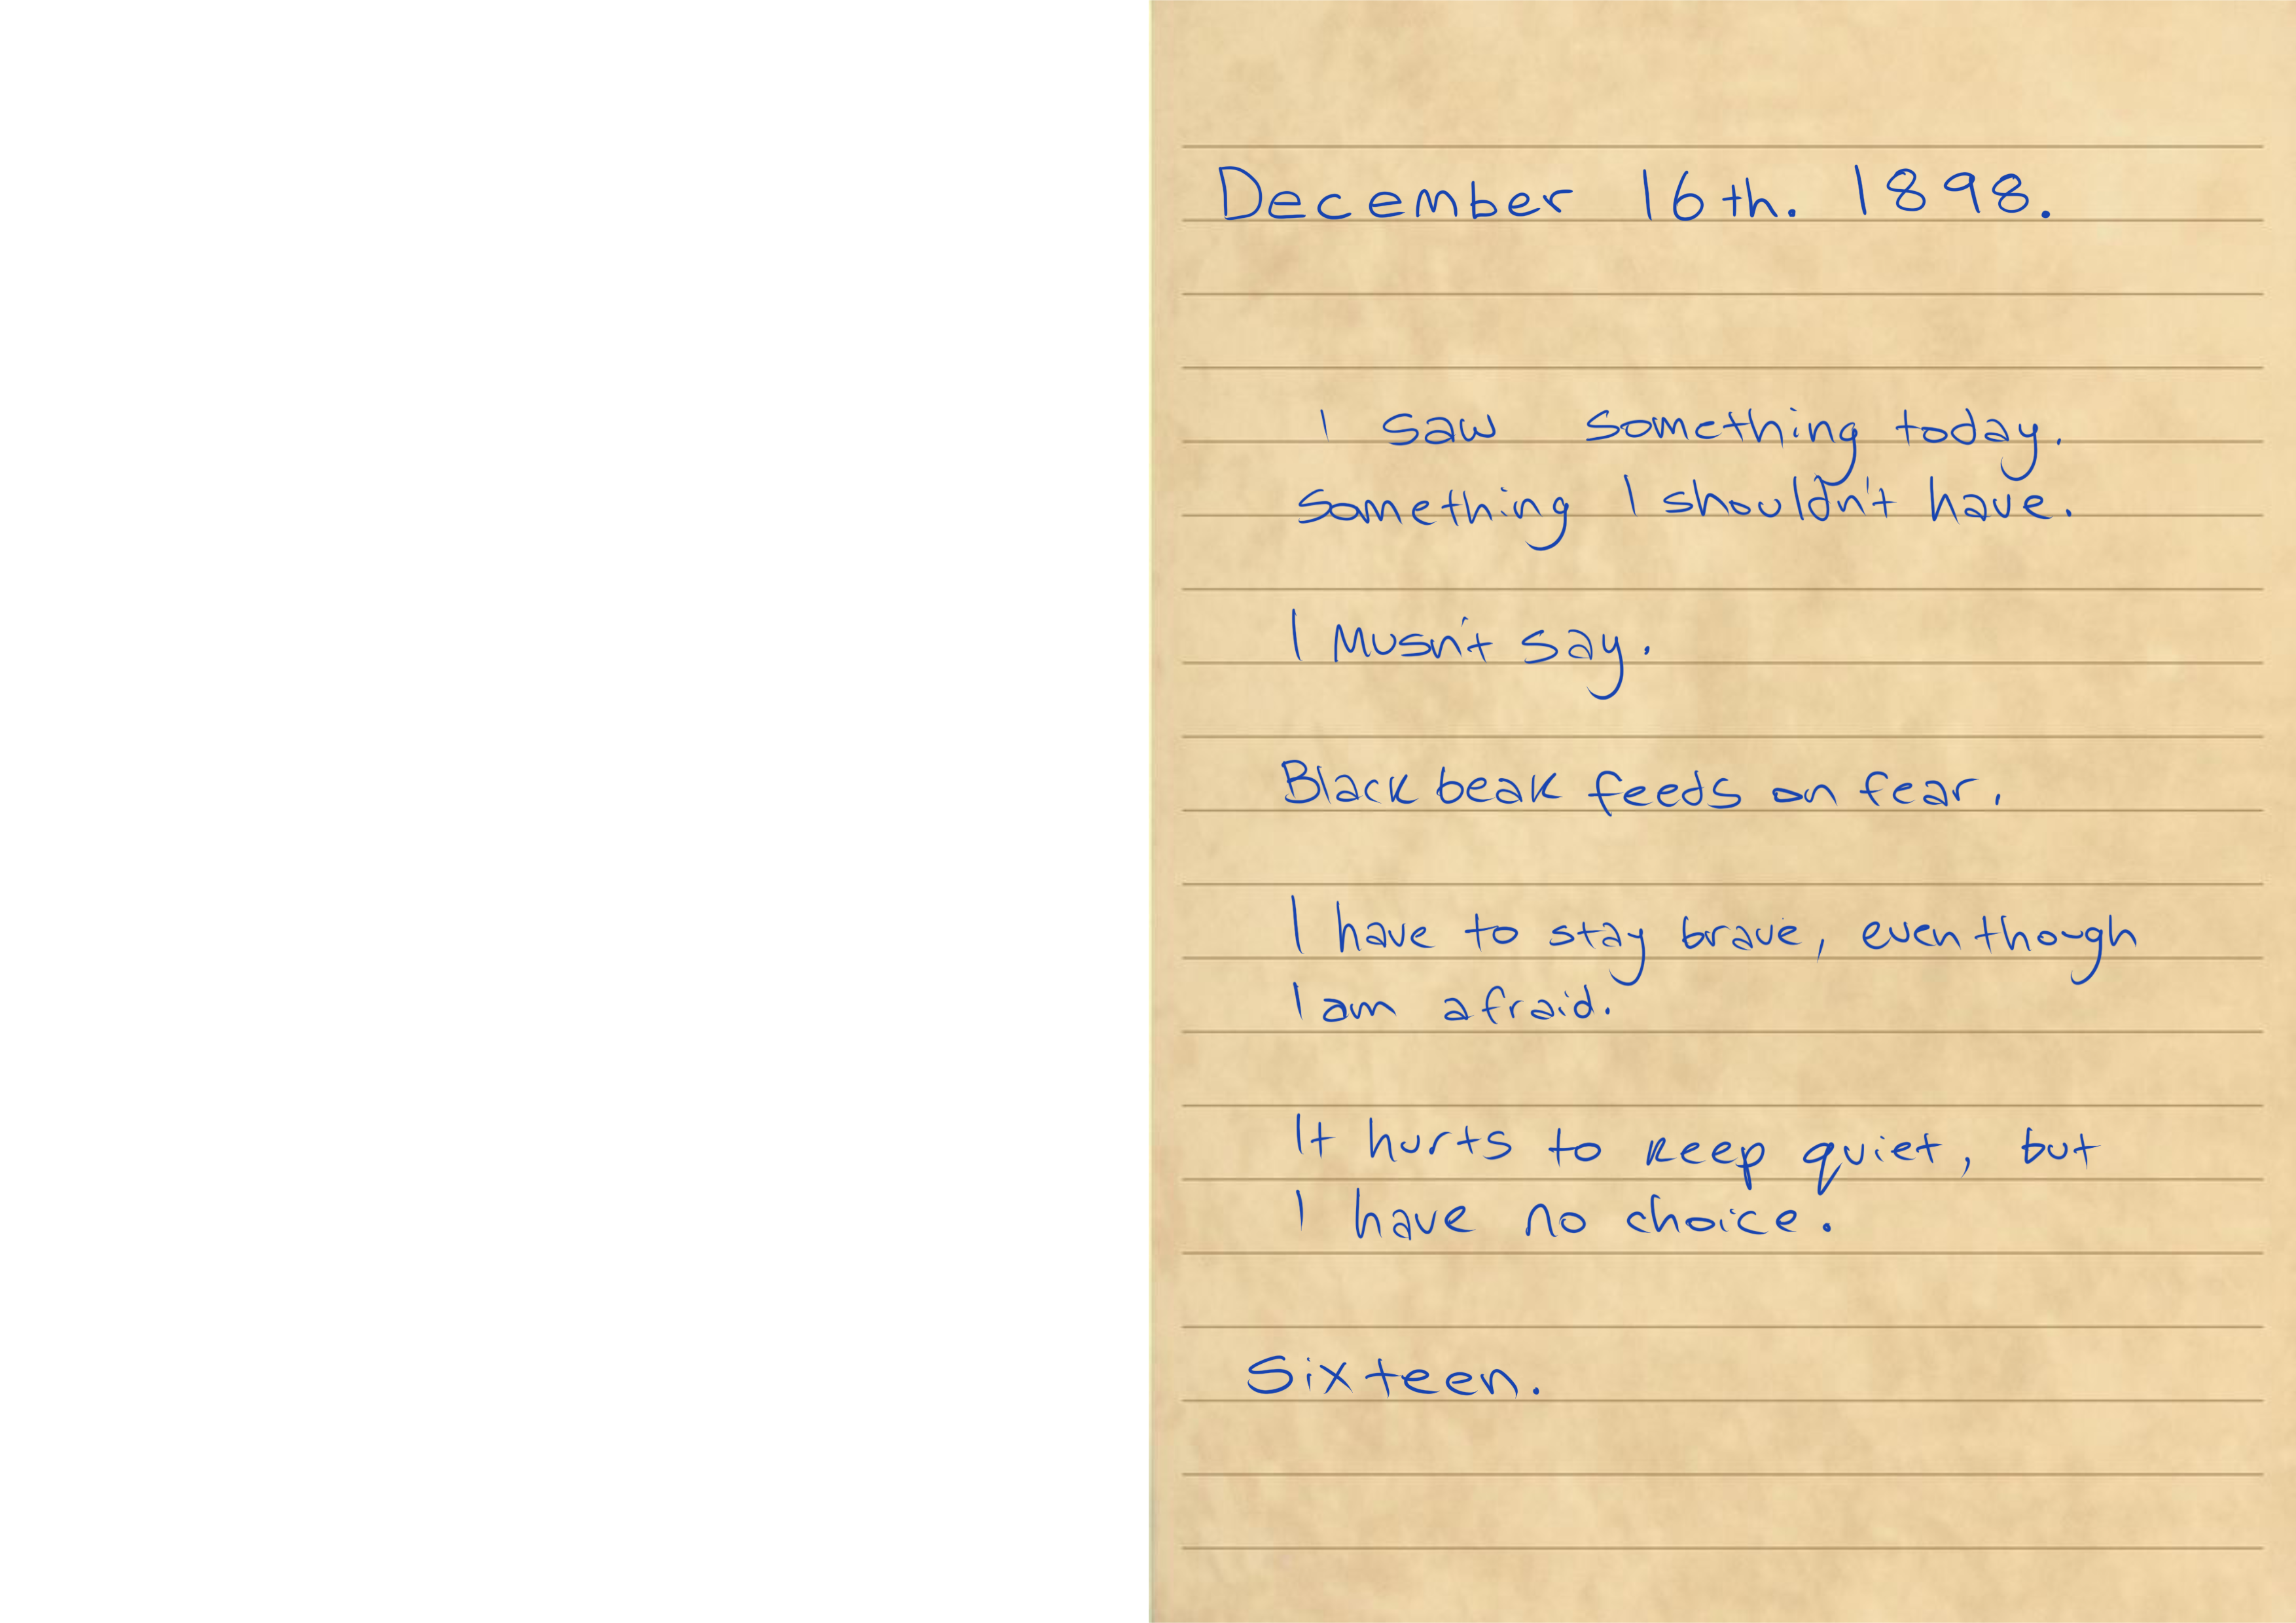 December 16th. 1898.
I saw something today.
something I shouldn't have.
I musn't say.
Black beak feeds on fear.
I have to stay brave, even though
I am afraid.
It hurts to keep quiet, but
I have no choice.
Sixteen.